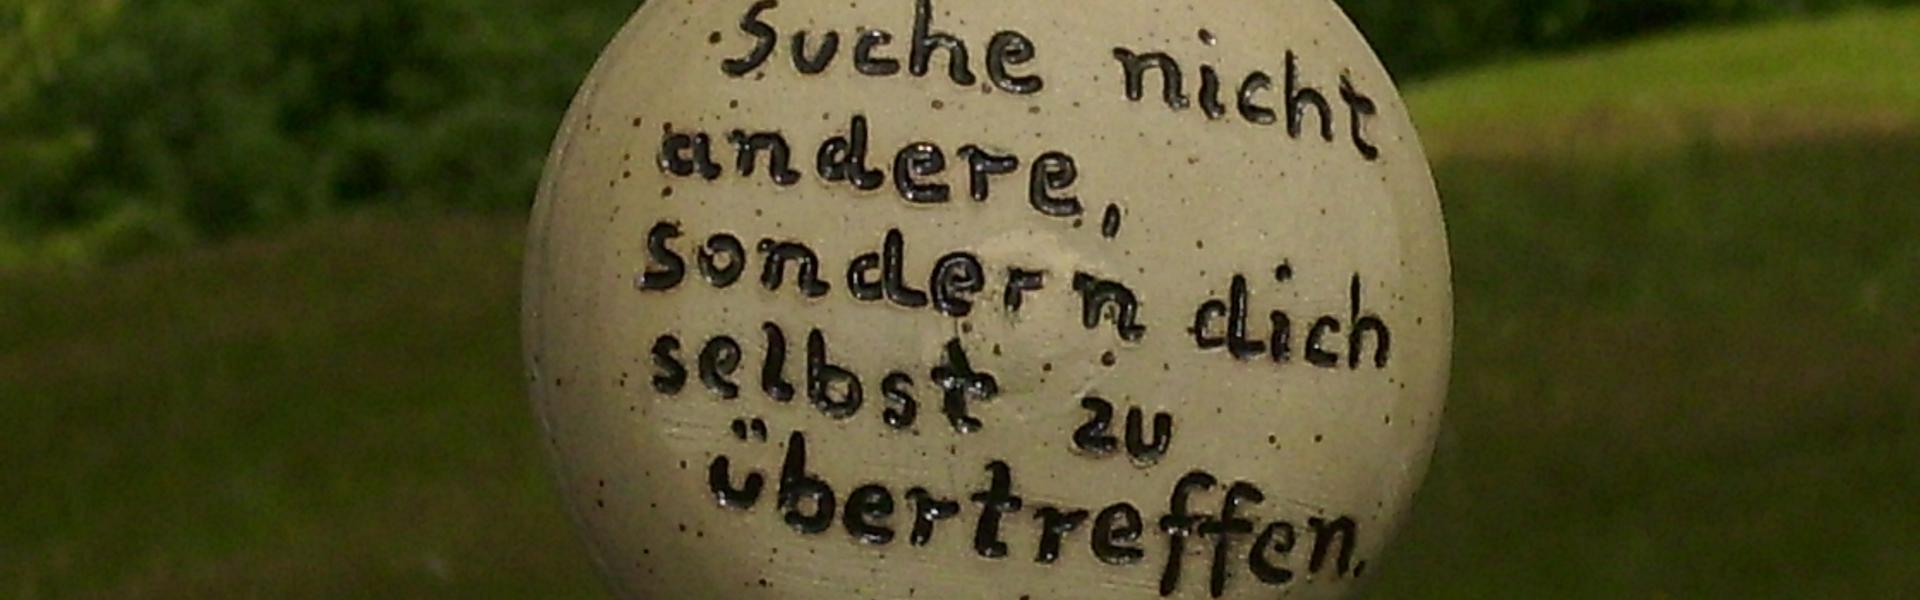 Suche nicht
andere,
sondern dich
selbst zu
übertreffen.